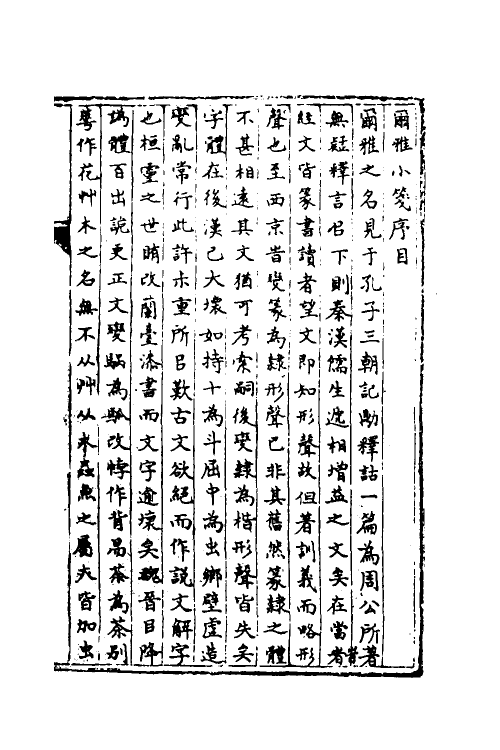 爾雅小箋序目
爾雅之名見于孔子三朝記勘釋詁一篇為周公所著
無疑釋言㠯下則秦漢儒生遞相增益之文矣在當者
經文皆篆書讀者望文即知形聲故但著訓義而略形
聲也至西京昔變篆為隸形聲已非其舊然篆隸之體
不甚相遠其文猶可考索嗣後變隸為楷形聲皆失矣
字體在後漢已大壞如持十為斗屈中為虫鄉壁虛造
變亂常行此許尗重所㠯歎古文欲絕而作說文解字
也桓靈之世賄改蘭臺漆書而文字逾壞矣魏晉㠯降
譌體百出說更正文變騧為騧改悖作背昜荼為茶別
蕚作花艸木之名無不从艸从木蟲魚之屬大皆加虫